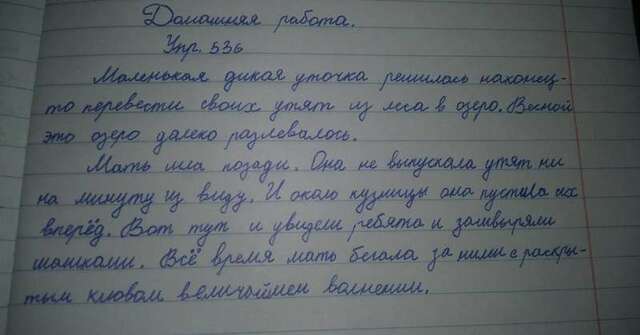 Домашняя работа.
Упр. 536
Маленькая дикая уточка решилась наконец-
то перевести своих утят из леса в озеро. Весной
это озеро далеко разлевалось.
Мать шла позади. Она не выпускала утят ни
на минуту из виду. И около кузницы она пустила их
вперёд. Вот тут и увидели ребята и зашвыряли
шапками. Всё время мать бегала за ними с раскры-
тым клювом величаймем волнении.